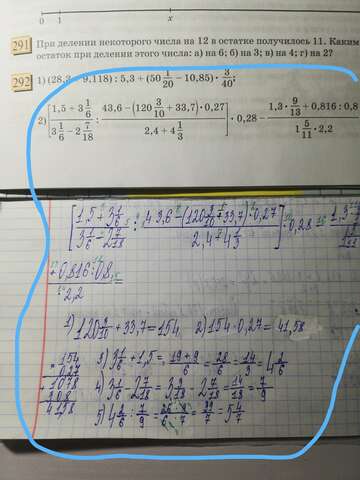 0 1 x
291 При делении некоторого числа на 12 в остатке получилось 11. Каким
остаток при делении этого числа: а) на 6; б) на 3; в) на 4; г) на 2?
292 1) (28,3 + 9,118) : 5,3 + (50 1/20 − 10,85) · 3/40;
2) [(1,5 + 3 1/6)/(3 1/6 − 2 7/18) : (43,6 − (120 3/10 + 33,7) · 0,27)/(2,4 + 4 1/3)] · 0,28 − (1,3 · 9/13 + 0,816 : 0,8)/(1 5/11 · 2,2)
[(1,5 + 3 1/6)/(3 1/6 − 2 7/18) : (43,6 − (120 3/10 + 33,7) · 0,27)/(2,4 + 4 1/3)] · 0,28
+ 0,816 : 0,8
2,2
1) 120 3/10 + 33,7 = 154 2) 154 · 0,27 = 41,58
154
0,27
1078
308
41,58
3) 3 1/6 + 1,5 = (19+9)/6 = 28/6 = 14/3 = 4 2/6
4) 3 1/6 − 2 7/18 = 3 3/18 − 2 7/18 = 14/18 = 7/9